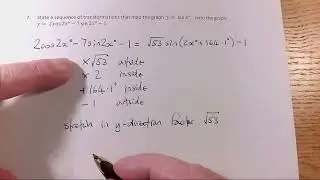 7. State a sequence of transformations that map the graph y = sin x° onto the graph
y = 2cos2x° - 7sin2x° - 1.
2cos2x° - 7sin2x° - 1 = √53 sin(2x° + 164.1°) - 1
× √53 outside
× 2 inside
+ 164.1° inside
- 1 outside
stretch in y-direction factor √53